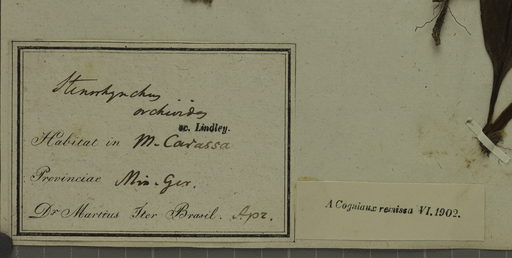 Stenorhynchus
orchioides
sc. Lindley.
Habitat in M. Carassa
Provinciae Min. Ger.
Dr Martius Iter Brasil. Apr.
A Cogniaux remissa VI. 1902.